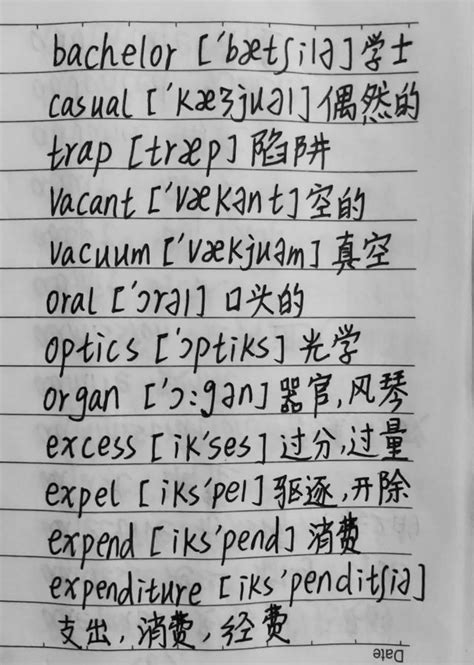 bachelor ['bætʃilə] 学士
casual ['kæʒjuəl] 偶然的
trap [træp] 陷阱
vacant ['vækənt] 空的
vacuum ['vækjuəm] 真空
oral ['ɔrəl] 口头的
optics ['ɔptiks] 光学
organ ['ɔ:gən] 器官,风琴
excess [ik'ses] 过分,过量
expel [iks'pel] 驱逐,开除
expend [iks'pend] 消费
expenditure [iks'penditʃiə]
支出,消费,经费
Date